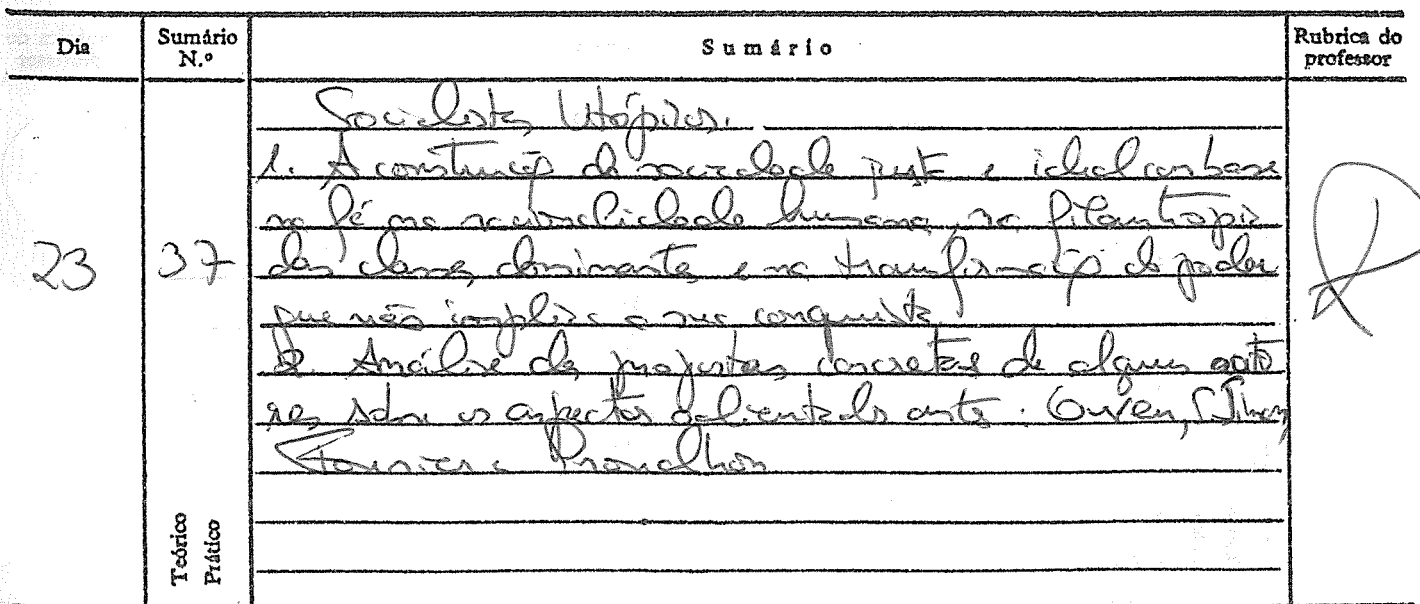 Dia
Sumário N.º
Sumário
Rubrica do professor
23
37
Socialistas Utópicos.
1. A construção da sociedade justa e ideal com base
na fé na racionalidade humana, na filantropia
das classes dominantes e na transformação do poder
que não implica a sua conquista
2. Análise de propostas concretas de alguns auto
res sobre os aspectos salientados antes. Owen, S. Simon,
Fourier e Proudhon
Teórico
Prático